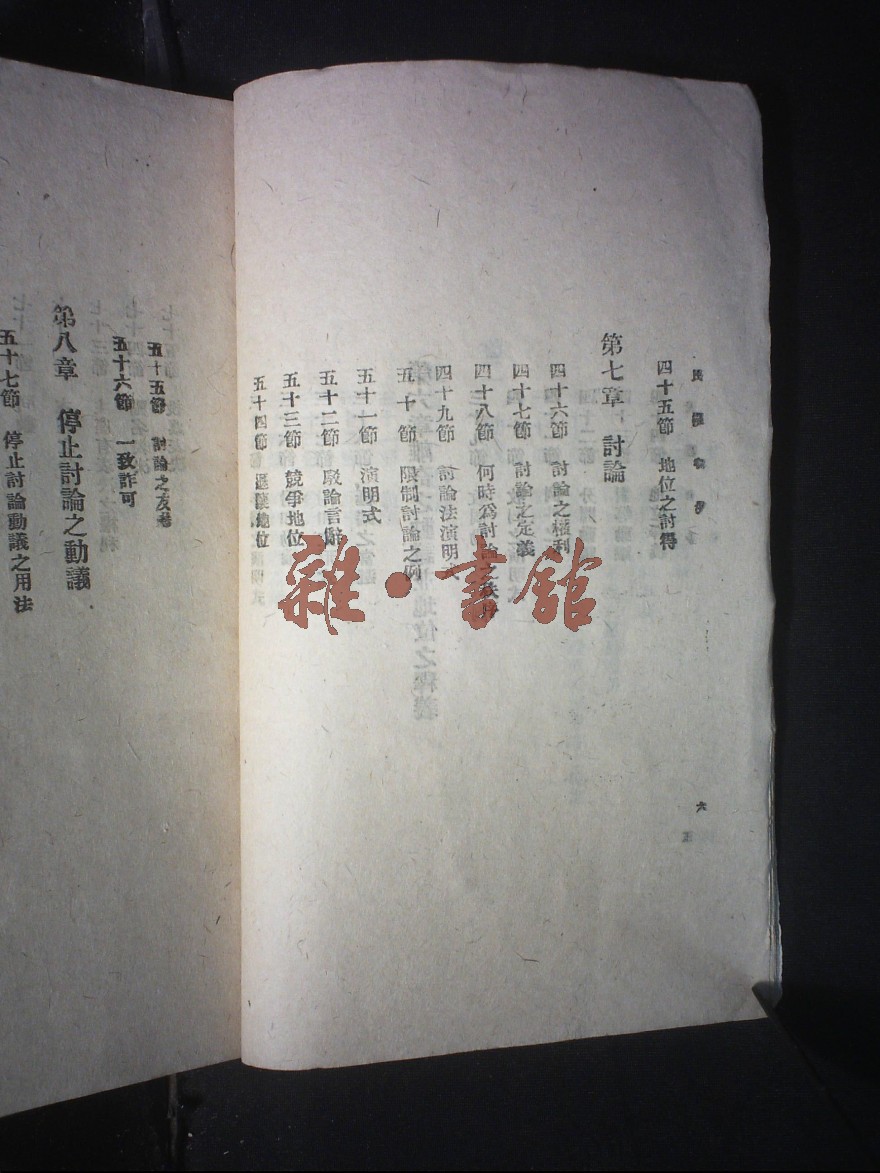 民權初步
四十五節　地位之討得
第七章　討論
四十六節　討論之權利
四十七節　討論之定義
四十八節　何時為討論之秩序
四十九節　討論法演明式
五十節　限制討論之例
五十一節　演明式
五十二節　駁論言辭
五十三節　競爭地位
五十四節　退讓地位
六
五十五節　討論之友恭
五十六節　一致許可
第八章　停止討論之動議
五十七節　停止討論動議之用法
雜·書館